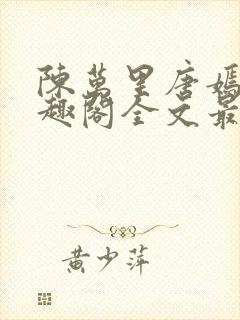 陳萬里唐嫣
趣閣全文最
黃少萍